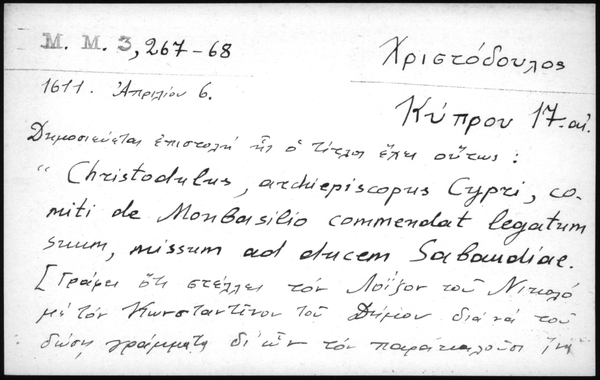 M. M. 3, 267-68
Χριστόδουλος
1611. Ἀπριλίου 6.
Κύπρου 17. αἰ.
Δημοσιεύεται ἐπιστολὴ ἧς ὁ τίτλος ἔχει οὕτως:
"Christodulus, archiepiscopus Cypri, co-
miti de Monbasilio commendat legatum
suum, missum ad ducem Sabaudiae.
[Γράφει ὅτι στέλλει τὸν Λοΐζον τοῦ Νικολό
μὲ τὸν Κωνσταντῖνον τοῦ Δήμου διὰ νὰ τοῦ
δώσῃ γράμματα δι' ὧν τὸν παρακαλοῦσι